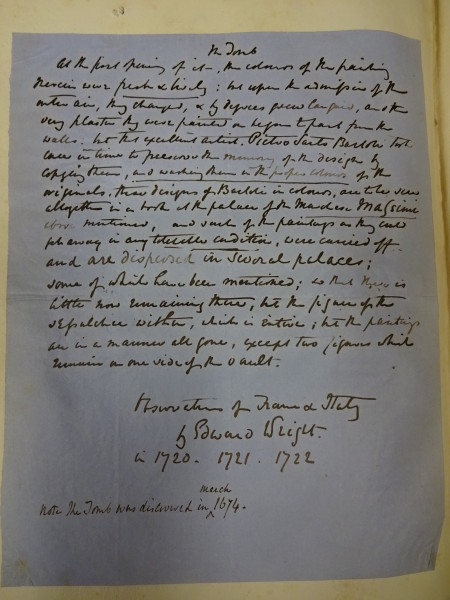 23
the Tomb
At the first opening of it, the colours of the painting
therein were fresh & lively: but upon the admission of the
outer air, they changed, & by degrees grew languid, and the
very plaster they were painted on began to part from the
walls. but the excellent artist, Pietro Santo Bartoli took
care in time to preserve the memory of the designs by
copying them, and washing them in the proper colours of the
originals. these designs of Bartoli in colours, are to be seen
altogether in a book at the palace of the Marchese Massimi
above mentioned, and such of the paintings as they could
get away in any tolerable condition, were carried off
and are dispersed in several palaces;
some of which have been mentioned; so that there is
little now remaining there, but the figure of the
sepulchre within, which is entire; but the paintings
are in a manner all gone, except two figures which
remain on one side of the vault.
Observations of France & Italy
by Edward Wright.
in 1720. 1721. 1722
march
note The Tomb was discovered in 1674.